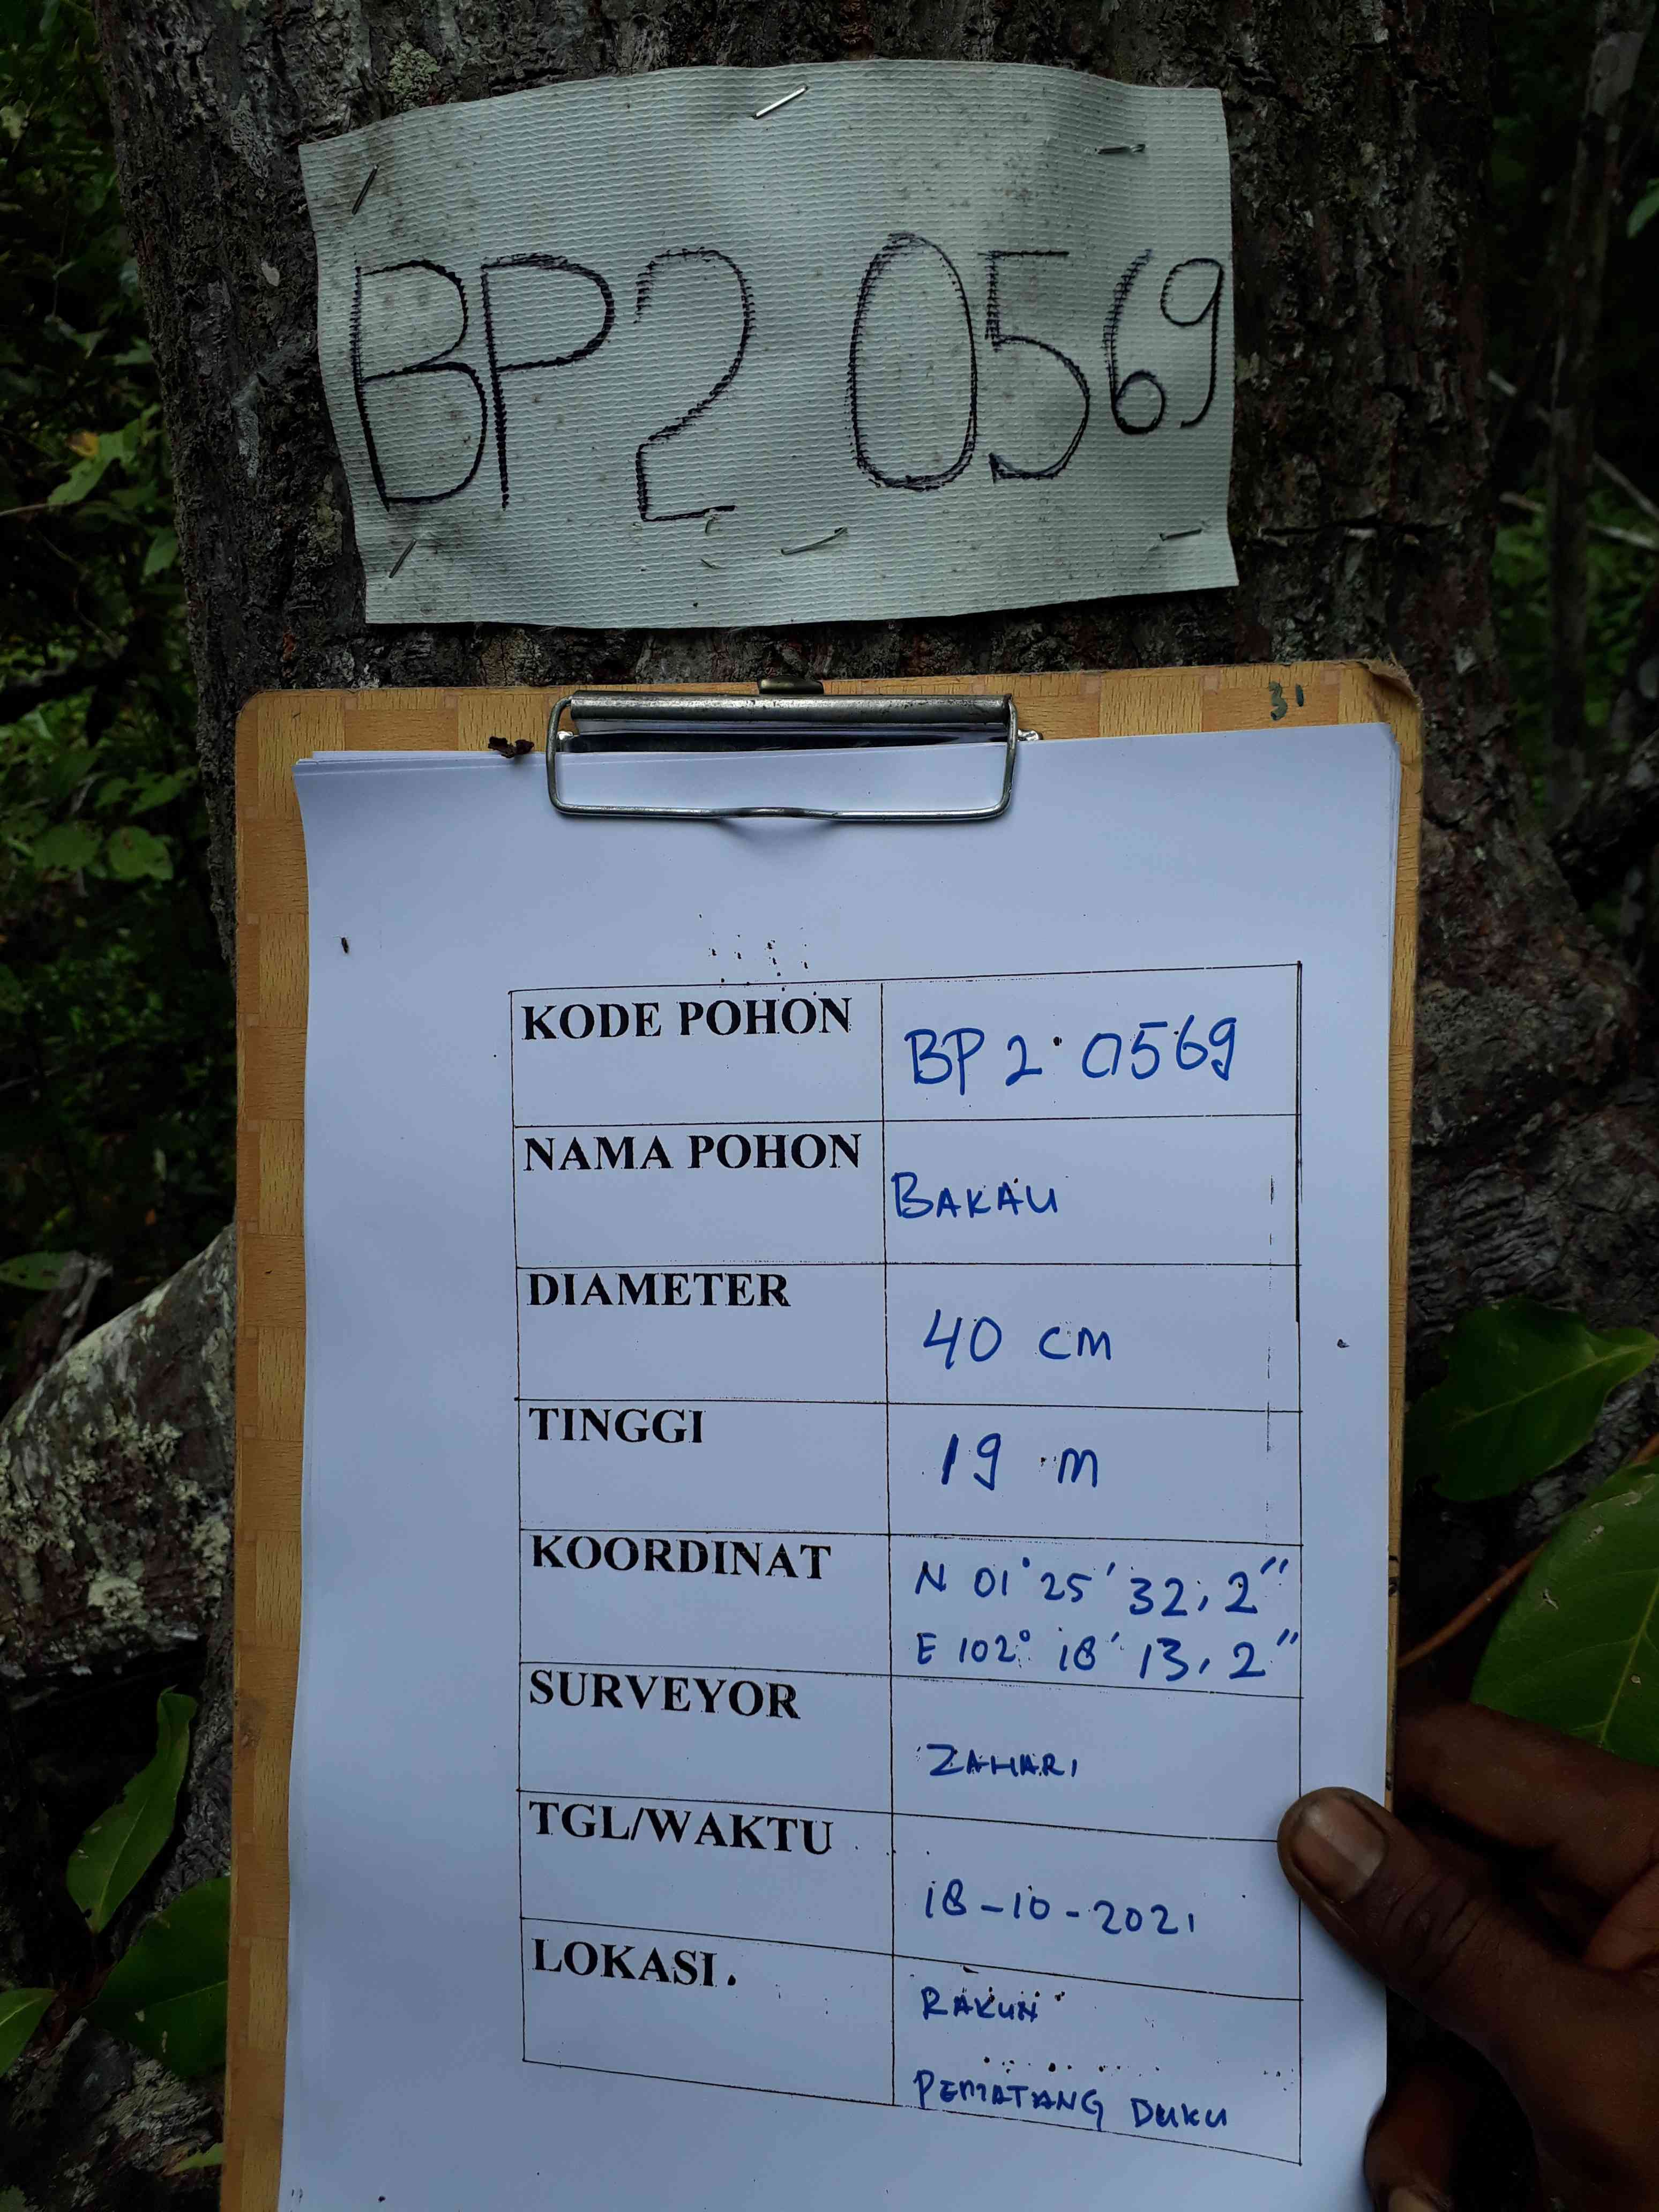 BP2 0569
31
KODE POHON BP 2 0569
NAMA POHON BAKAU
DIAMETER 40 cm
TINGGI 19 m
KOORDINAT N 01° 25' 32,2"
E 102° 18' 13,2"
SURVEYOR ZAHARI
TGL/WAKTU 18-10-2021
LOKASI. RAKUN
PEMATANG DUKU